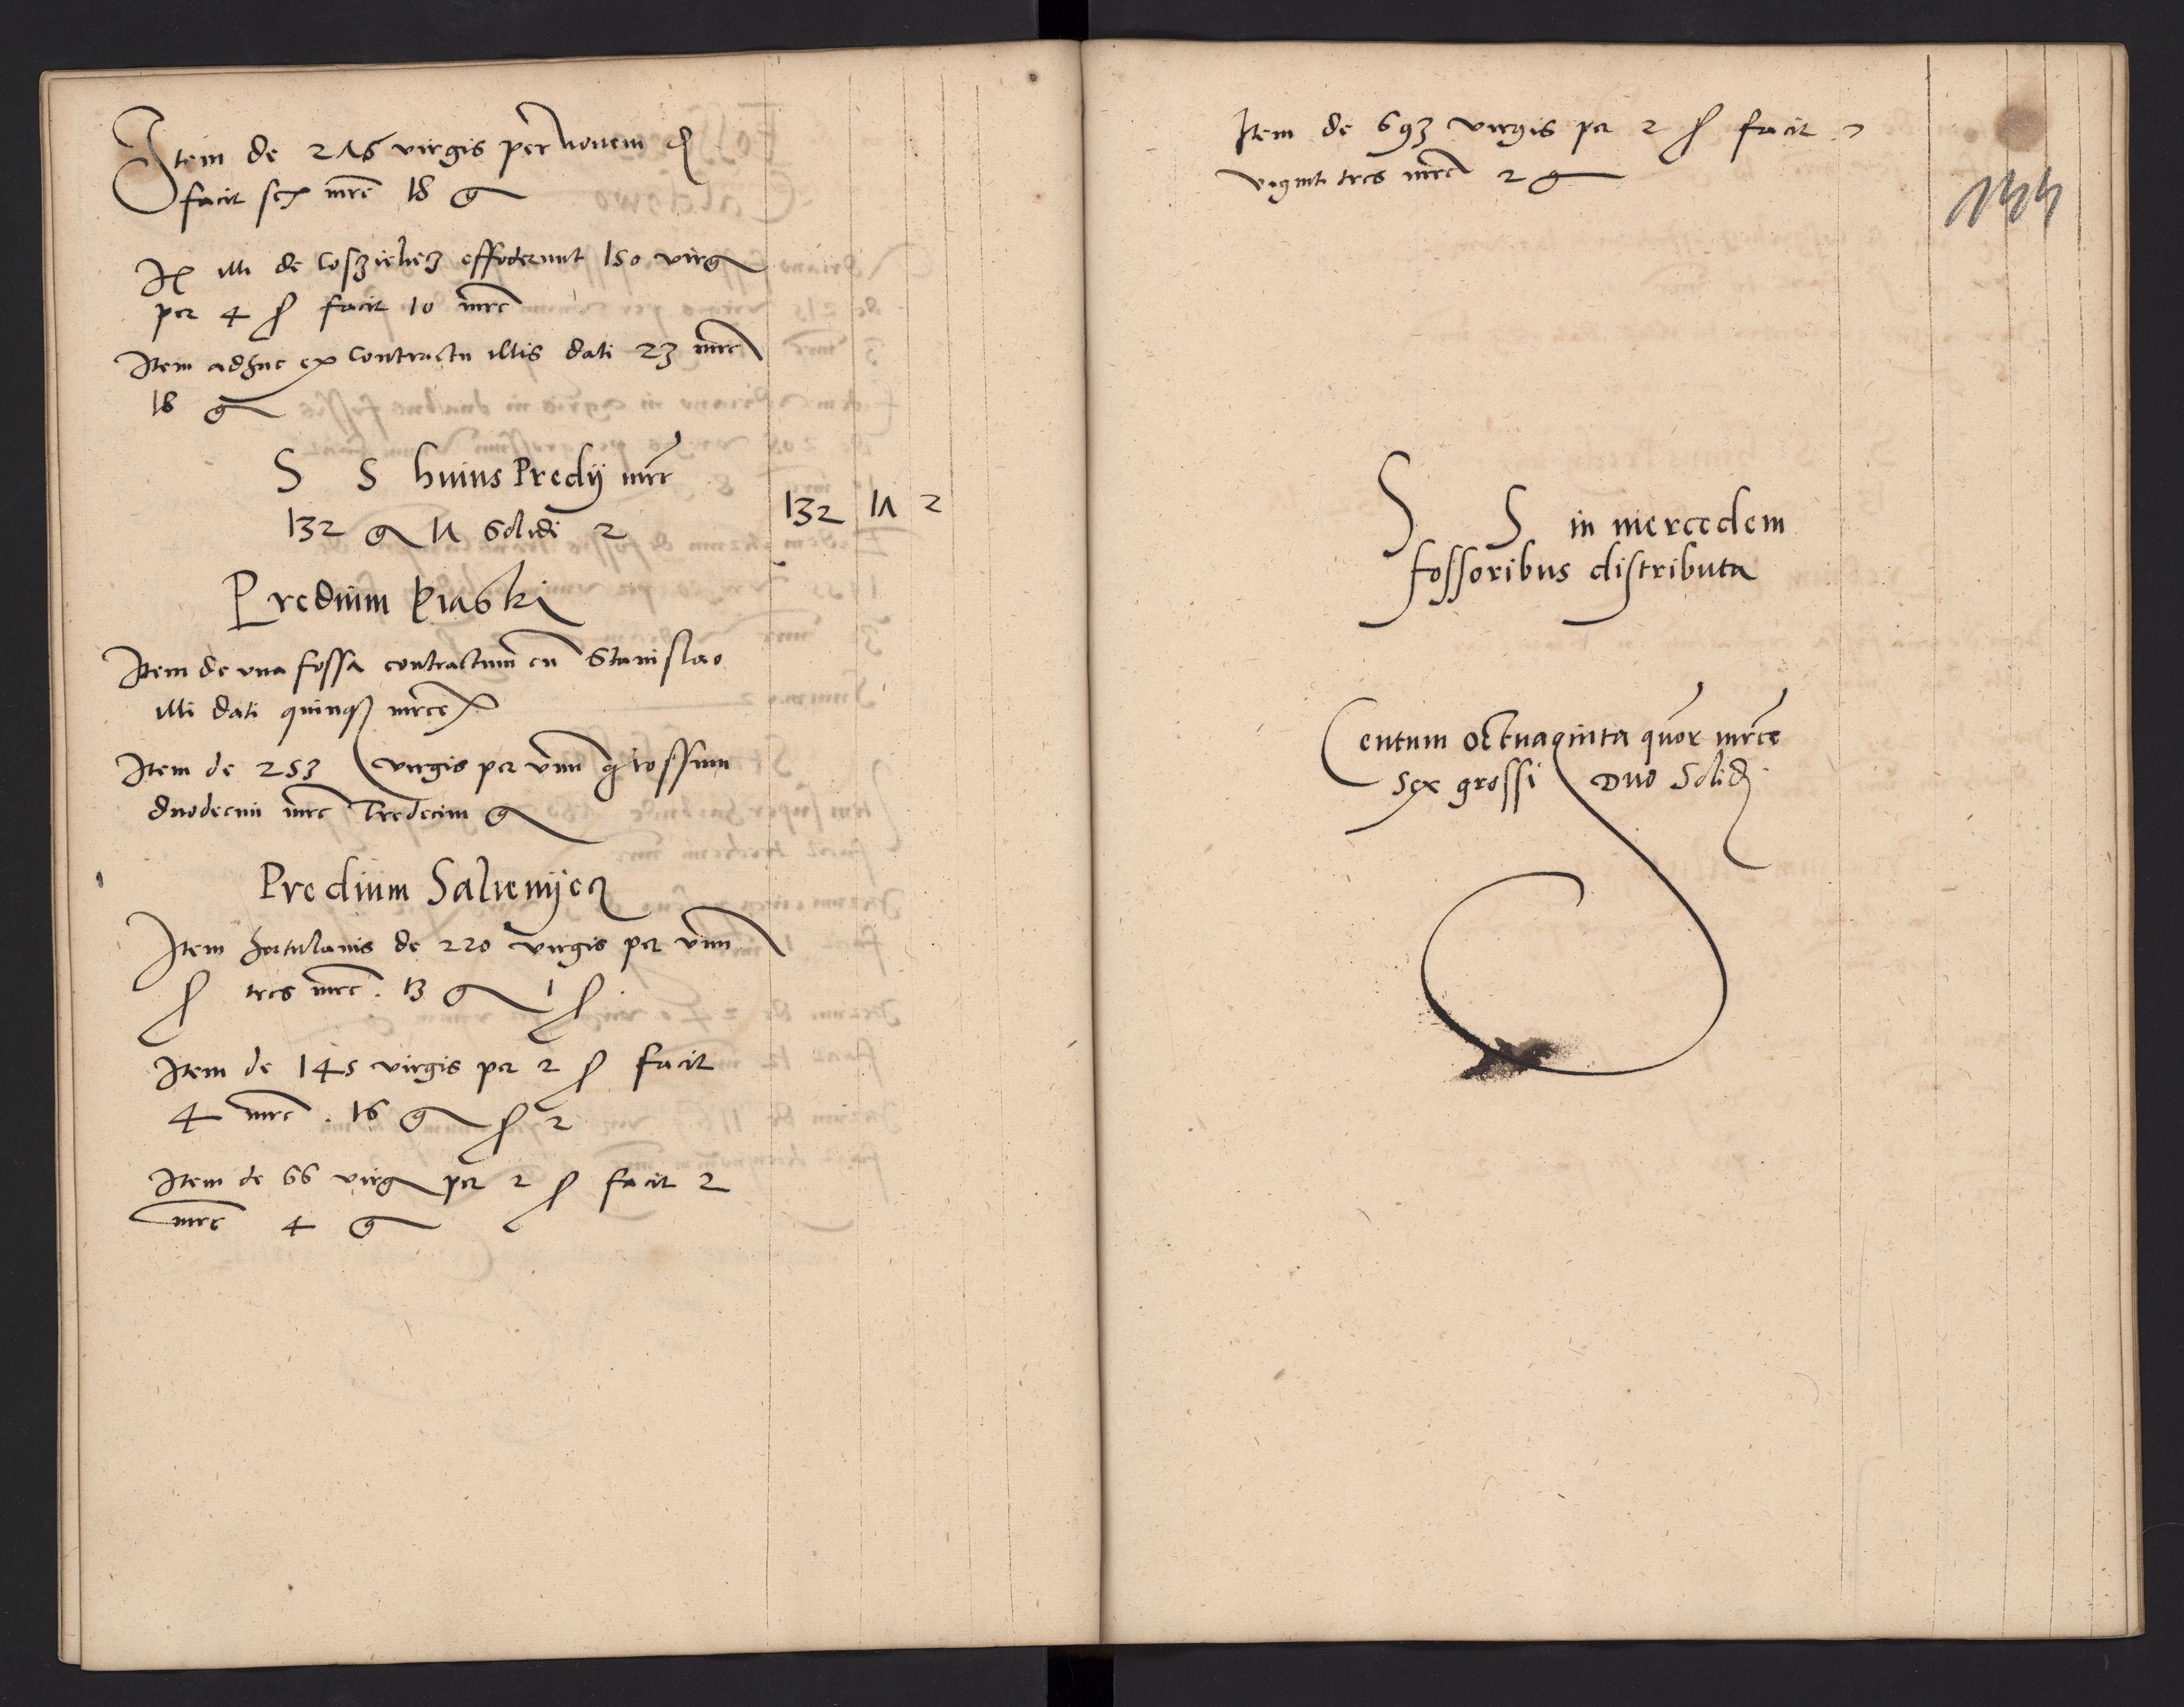 Item de 216 virgis per novem d
facit sex mrc 18 g
It illi de Coszieliez effoderunt 150 virg
per 4 s facit 10 mrc
Item adhuc ex contractu illis dati 23 mrc
18 g
S S huius Predij mrc
132 g 11 solidi 2
132 11 2
Predium Piaski
Item de una fossa contractum cu Stanislao
illi dati quinq mrce
Item de 253 virgis per unu grossum
duodecim mrc Tredecim g
Predium
Item hortulanis de 220 virgis per unu
s tres mrc. 13 g 1 s
Item de 145 virgis per 2 s facit
4 mrc. 16 g s 2
Item de 66 virg per 2 s facit 2
mrc 4 g
Item de 693 virgis per 2 s facit
viginti tres mrc 2 g
144
S S in mercedem
fossoribus distributa
Centum octuaginta quor mrce
sex grossi Duo Solid